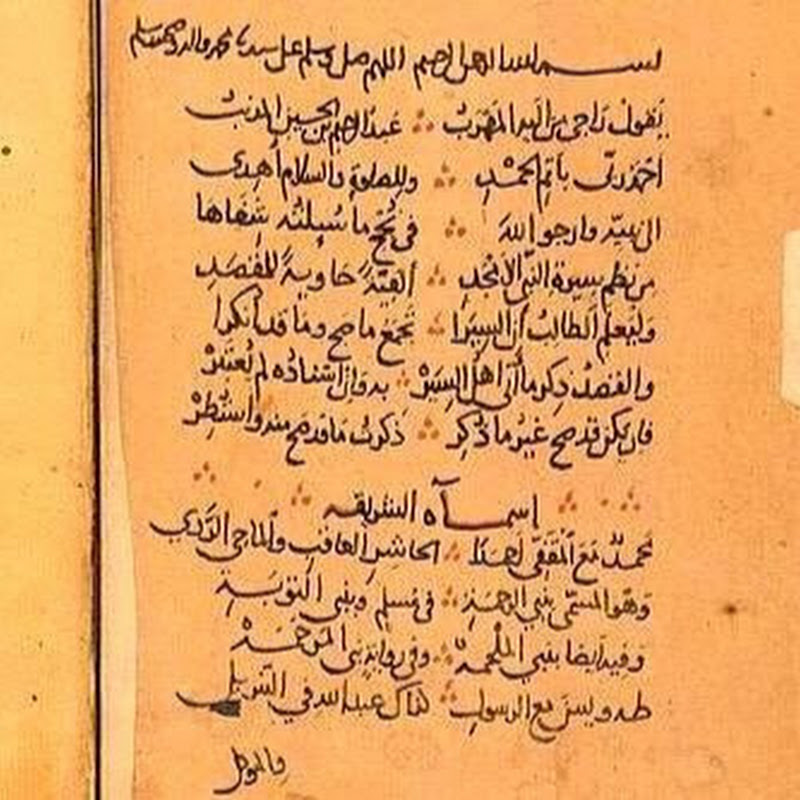 بسم الله الرحمن الرحيم اللهم صل وسلم على سيدنا محمد واله وصحبه وسلم
يقول راجي من اليه المهرب ∴ عبد الرحيم بن الحسين المذنب
احمد ربي باتم الحمد ∴ وللصلوة والسلام أهدي
الى نبيه وارجو الله ∴ في نجح ما سيلته شفاها
من نظم سيرة النبي الامجد ∴ ألفية حاوية للمقصد
وليعلم الطالب أن السيرا ∴ تجمع ما صح وما قد أنكرا
والقصد ذكر ما أتى أهل السير ∴ به وإن اسناده لم يعتبر
فان يكن قد صح غير ما ذكر ∴ ذكرت ما قد صح منه واستطر
اسماؤه الشريفة
محمد مع المقفى احمدا ∴ الحاشر العاقب والماحي الردي
وهو المسمى بنبي الرحمة ∴ في مسلم وبنبي التوبة
وفيه ايضا بنبي الملحمة ∴ وفي رواية نبي المرحمة
طه ويس مع الرسول ∴ كذاك عبد الله في التنزيل
والمزمل